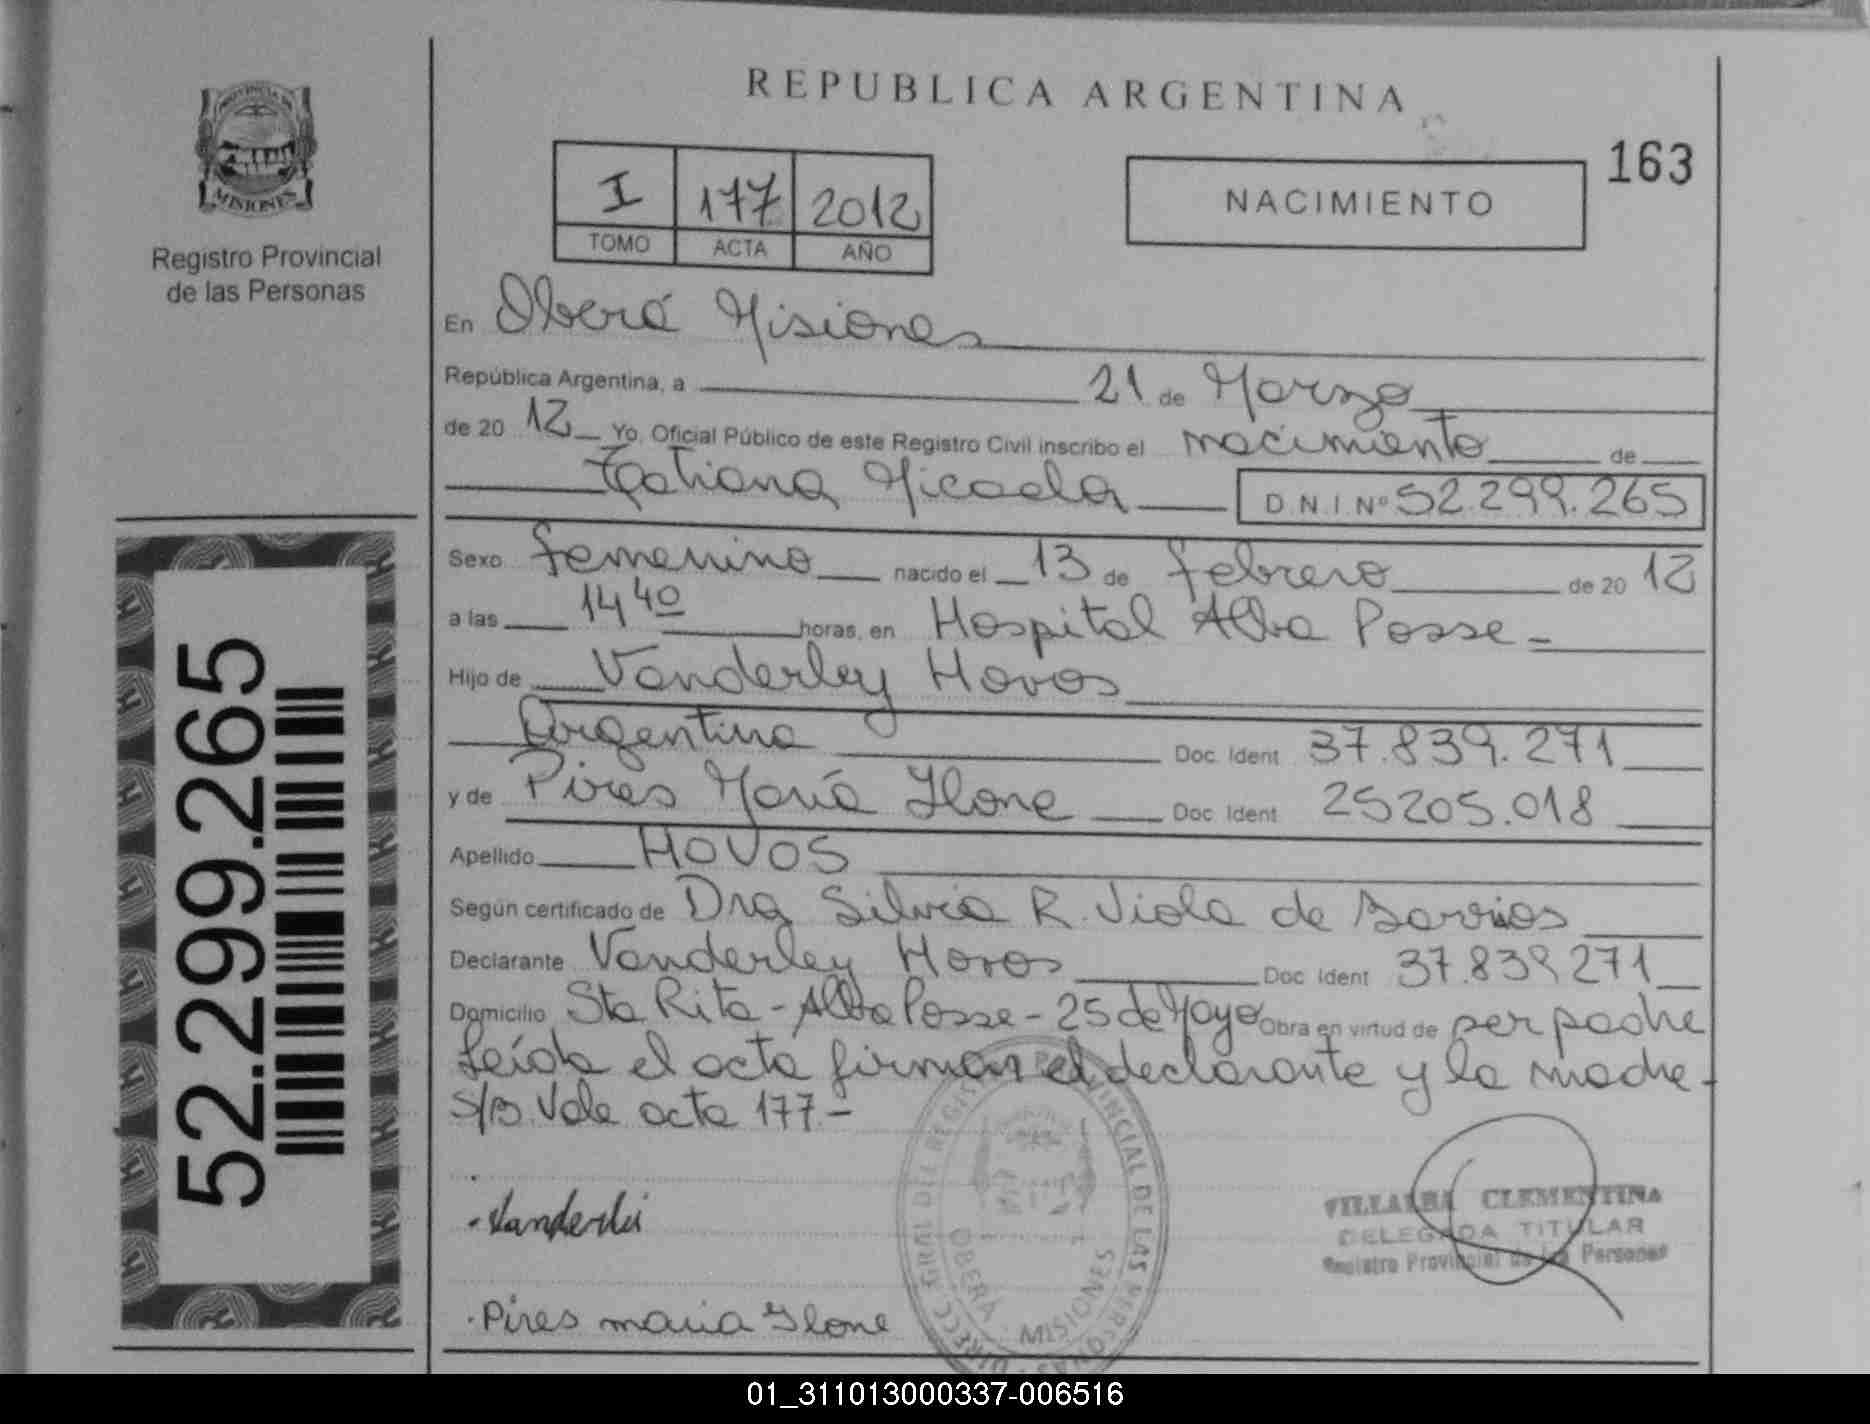 REPUBLICA ARGENTINA
163
PROVINCIA DE
MISIONES
Registro Provincial
de las Personas
I 177 2012
TOMO ACTA AÑO
NACIMIENTO
En Oberá Misiones
República Argentina, a 21 de Marzo
de 20 12 Yo, Oficial Público de este Registro Civil inscribo el nacimiento de
Tatiana Micaela D.N.I.Nº 52.299.265
Sexo femenino nacido el 13 de febrero de 20 12
a las 14 40 horas, en Hospital Alba Posse
Hijo de Vanderley Hovos
Argentina Doc. Ident 37.839.271
y de Pires María Ilone Doc. Ident 25205.018
Apellido HOVOS
Según certificado de Dra Silvia R. Viola de Barrios
Declarante Vanderley Hovos Doc. Ident 37.839271
Domicilio Sta Rita - Alba Posse - 25 de Mayo Obra en virtud de ser padre
Leída el acta firman el declarante y la madre -
S/B. Vale acta 177.-
52.299.265
Vanderlei
Pires maria Ilone
DIRECC. GRAL DEL REGISTRO PROVINCIAL DE LAS PERSONAS
OBERA MISIONES
VILLALBA CLEMENTINA
DELEGADA TITULAR
Registro Provincial de las Personas
01_311013000337-006516